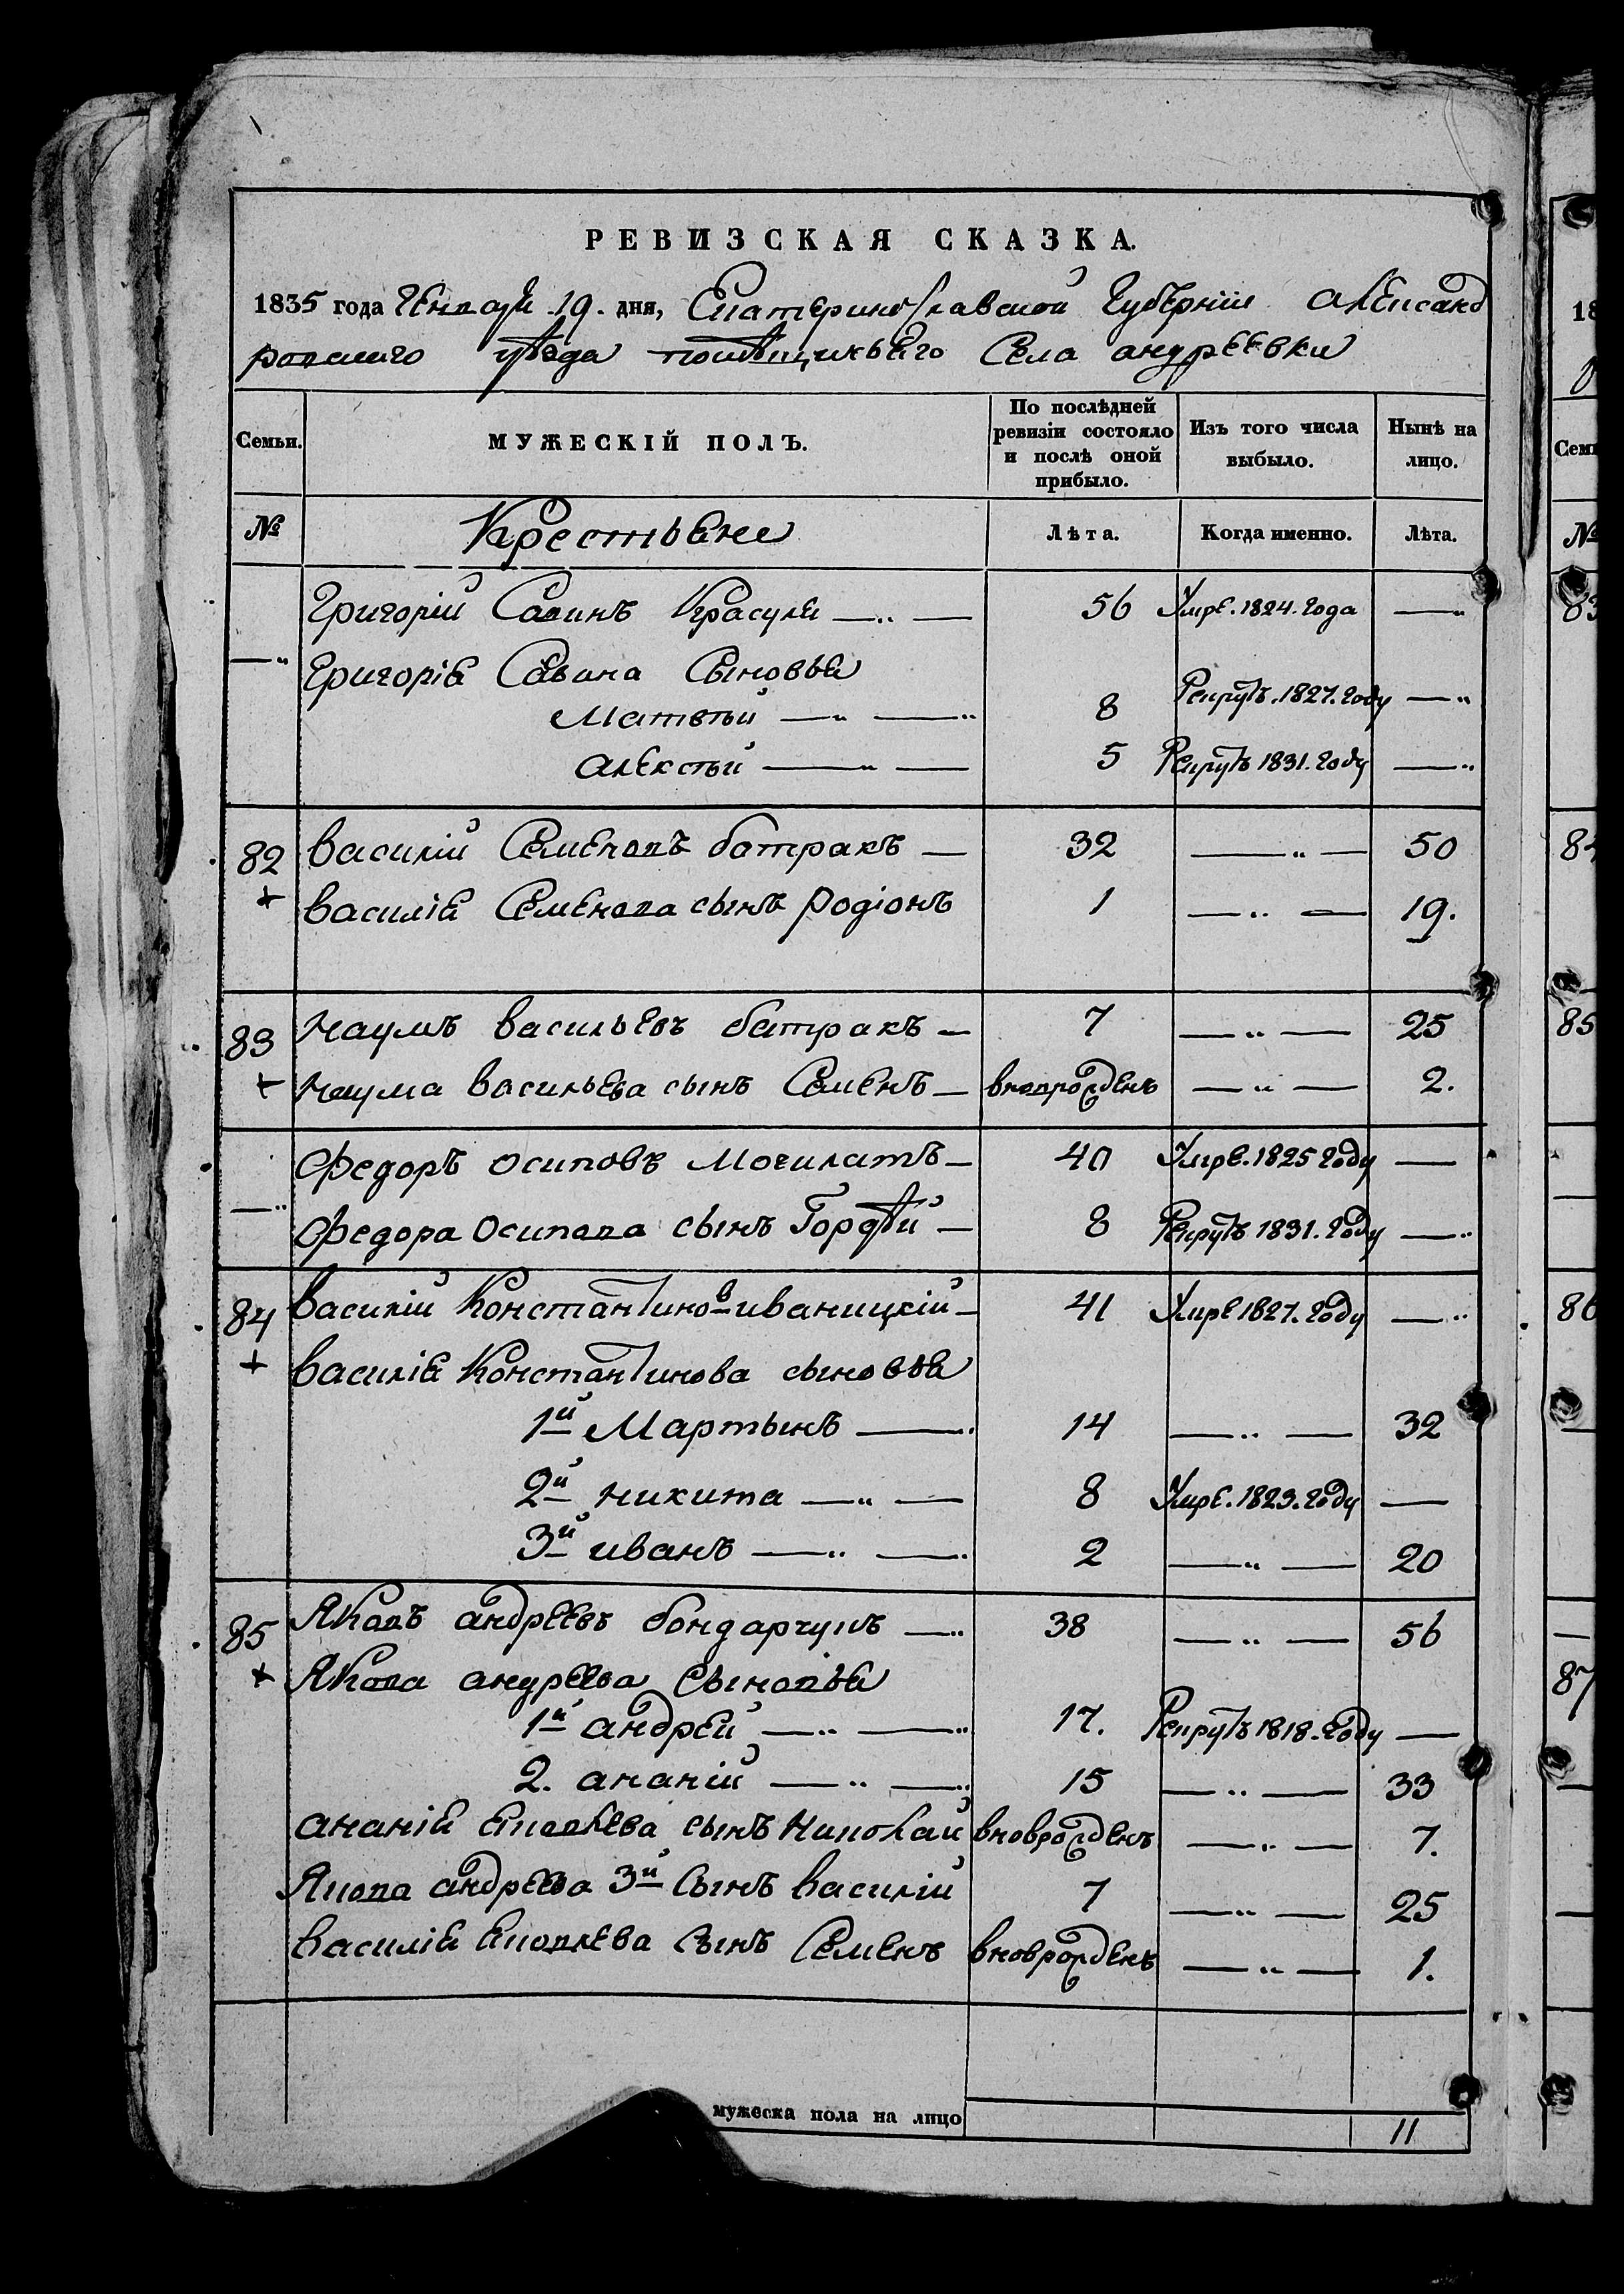 РЕВИЗСКАЯ СКАЗКА.
1835 года Генваря 19. дня, Екатеринославской Губерніи Александ
ровскаго уѣзда помѣщичьяго Села андреевки
Семьи. МУЖЕСКІЙ ПОЛЪ. По послѣдней ревизіи состояло и послѣ оной прибыло. Изъ того числа выбыло. Нынѣ на лицо.
№ Крестьяне Лѣта. Когда именно. Лѣта.
Григорій Савинъ Красуля 56 Умре. 1824. года
Григорія Савина Сыновья
Матвѣй 8 Рекрутъ. 1827. году
алексѣй 5 Рекрутъ 1831. году
82 василій Семеновъ батракъ 32 50
василія Семенова сынъ родіонъ 1 19.
83 наумъ васильевъ батракъ 7 25
наума васильева сынъ Семенъ вновьрожденъ 2.
федоръ осиповъ 40 Умре. 1825 году
федора осипова сынъ Гордѣй 8 Рекрутъ 1831. году
84 василій Константиновъ иваницкій 41 Умре 1827. году
василія Константинова сыновья
1й Мартынъ 14 32
2й никита 8 Умре. 1823. году
3й иванъ 2 20
85 Яковъ андреевъ бондарчукъ 38 56
Якова андреева Сыновья
1й андрей 17. Рекрутъ 1818. году
2. ананій 15 33
ананія яковлева сынъ николай вноврожденъ 7.
Якова андреева 3й Сынъ василій 7 25
василія яковлева Сынъ Семенъ вноврожденъ 1.
мужеска пола на лицо 11